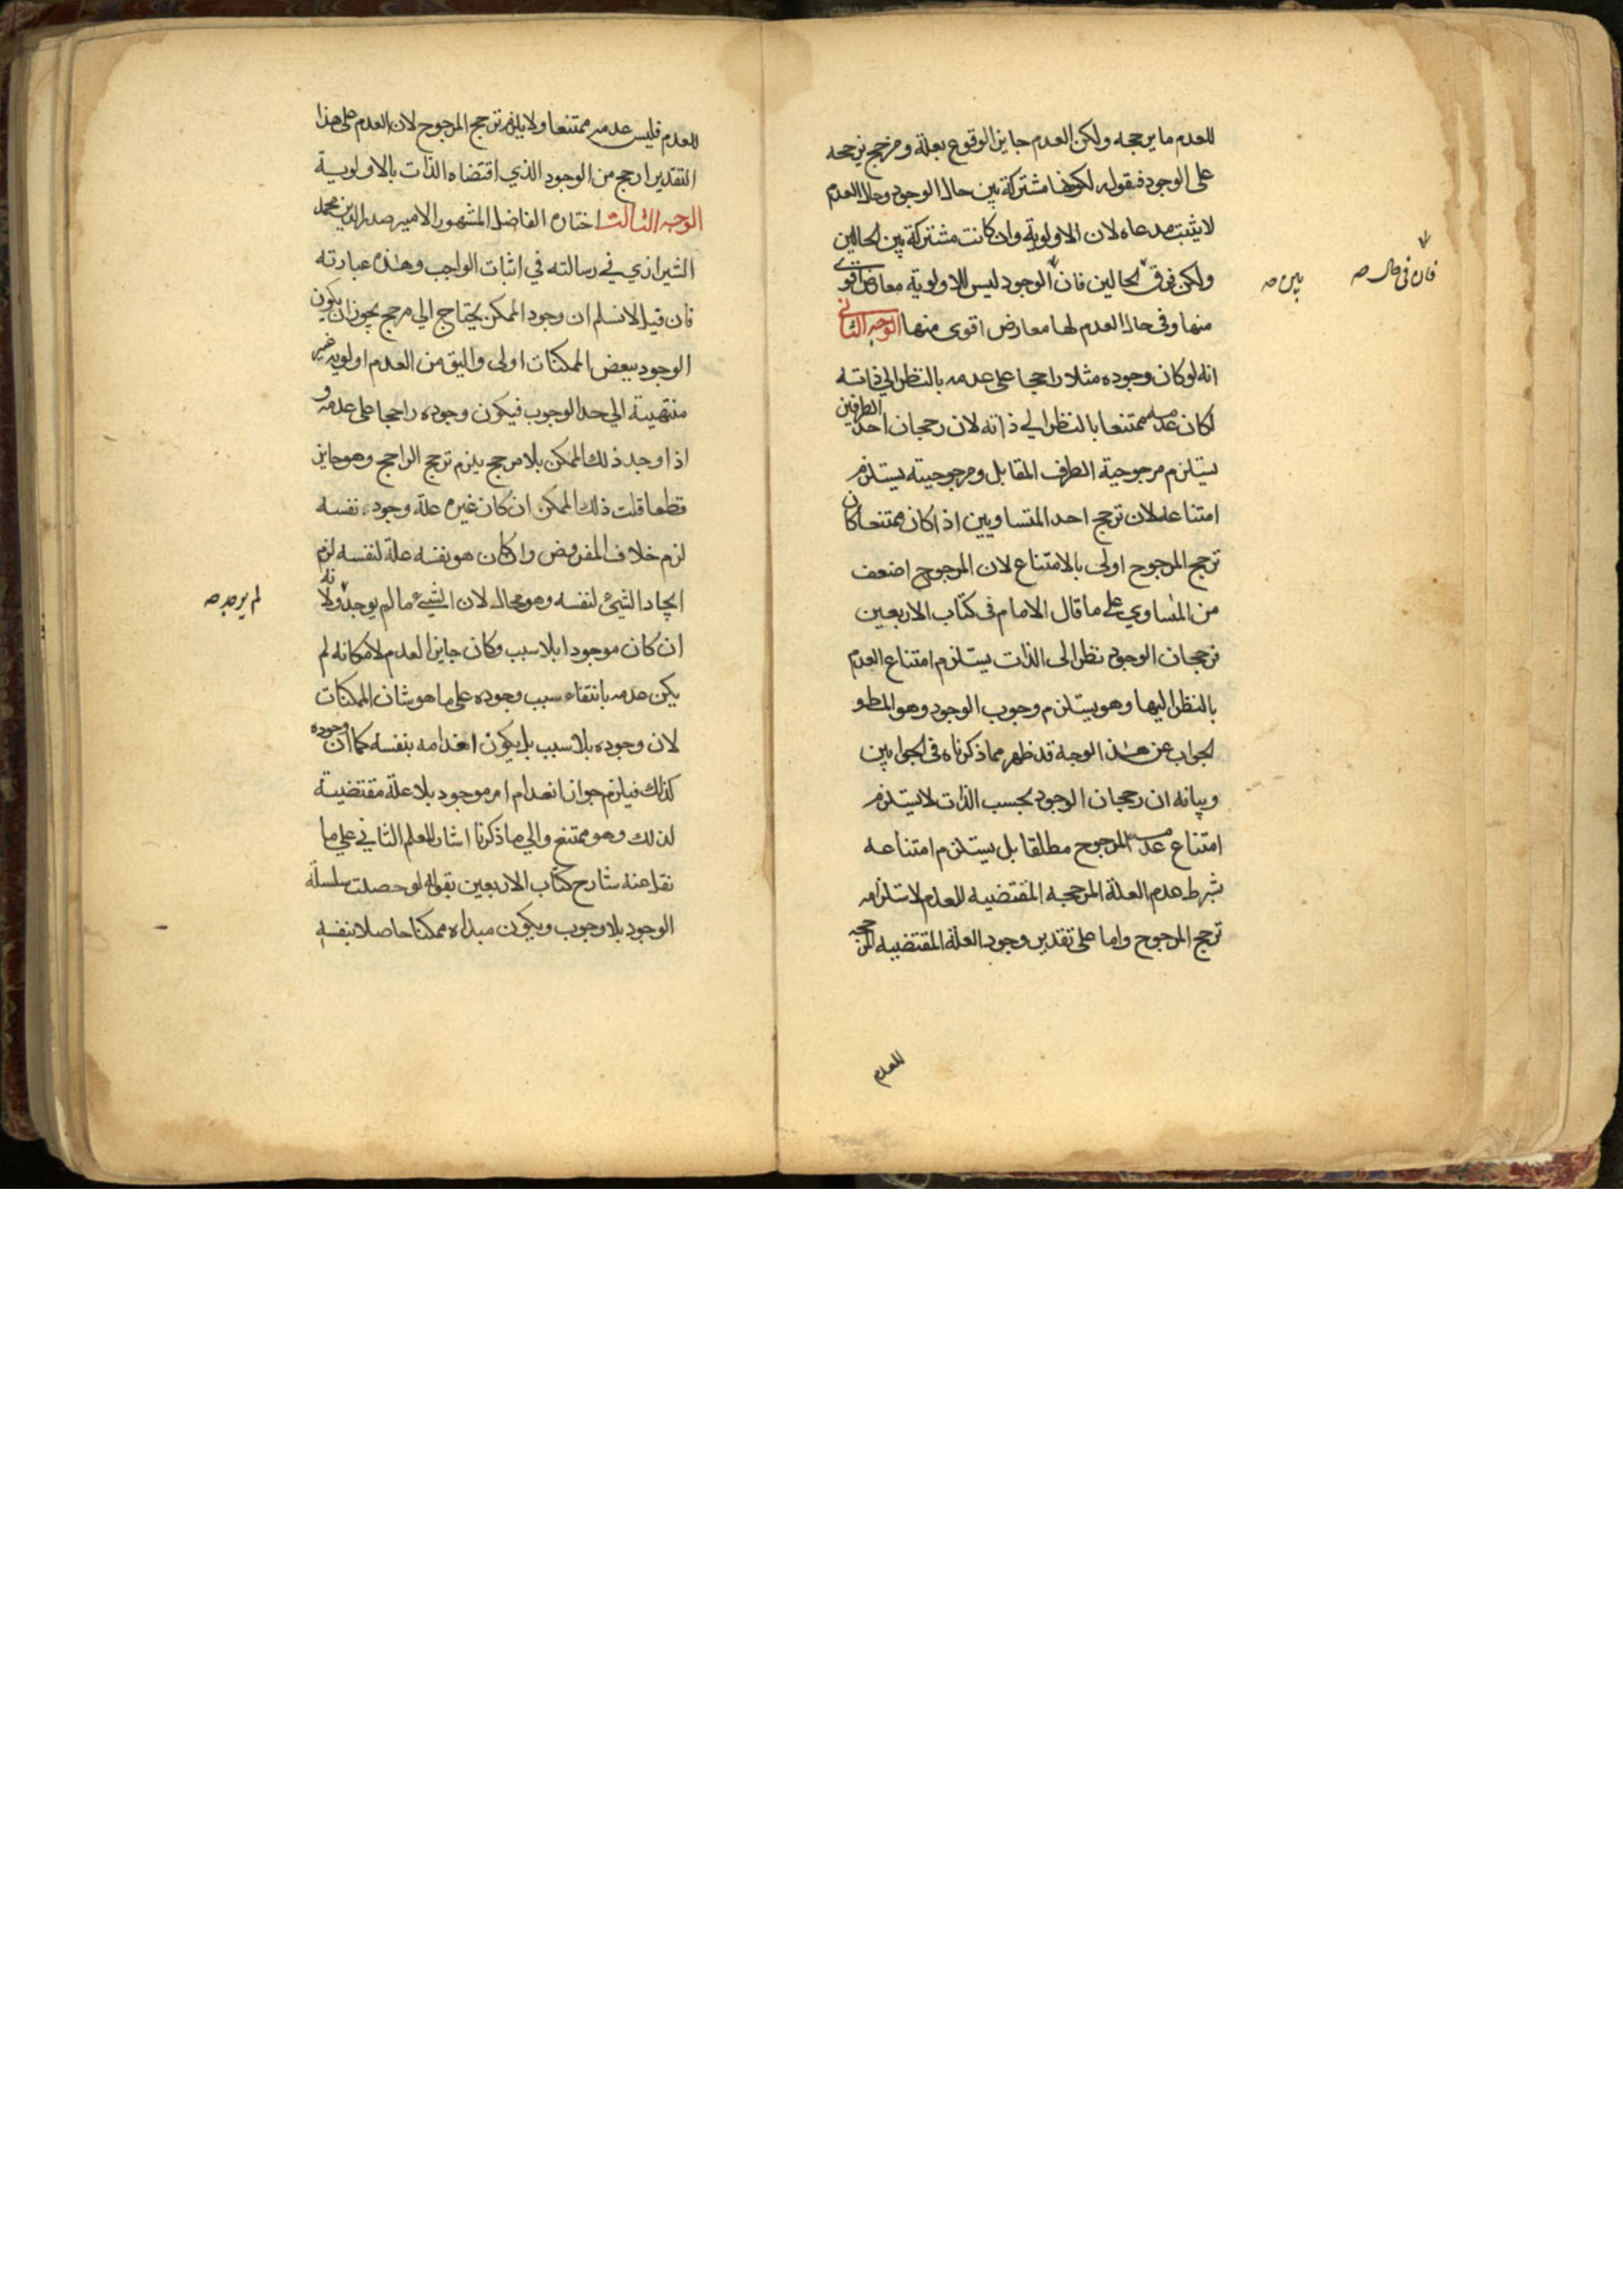 للعدم ما يرجحه ولكن العدم جايز الوقوع بعلة ومرجح يرجحه
على الوجود فبقوله لكونها مشتركة بين حال الوجود وحال العدم
لا يثبت مدعاه لان الاولوية وان كانت مشتركة بين الحالين
ولكن فرق الحالين فان الوجود ليس للاولوية معارض اقوى
منها وفى حال العدم لها معارض اقوى منها الوجه الثانى
انه لو كان وجوده مثلا راجحا على عدمه بالنظر الى ذاته
لكان عدمه ممتنعا بالنظر الى ذاته لان رجحان احد الطرفين
يستلزم مرجوحية الطرف المقابل ومرجوحيته يستلزم
امتناعه لان ترجح احد المتساويين اذا كان ممتنعا كان
ترجح المرجوح اولى بالامتناع لان المرجوح اضعف
من المساوي على ما قال الامام فى كتاب الاربعين
فرجحان الوجود نظرا الى الذات يستلزم امتناع العدم
بالنظر اليها وهو يستلزم وجوب الوجود وهو المطلو
الجواب عن هذا الوجه قد ظهر مما ذكرناه فى الجوابين
وبيانه ان رجحان الوجود بحسب الذات لا يستلزم
امتناع عدمه المرجوح مطلقا بل يستلزم امتناعه
بشرط عدم العلة المرجحه المقتضيه للعدم لاستلزامه
ترجح المرجوح واما على تقدير وجود العلة المقتضيه المرجحه
للعدم
فان فى حال صح
بين صح
للعدم فليس عدمه ممتنعا ولا يلزم ترجح المرجوح لان العدم على هذا
التقدير ارجح من الوجود الذي اقتضاه الذات بالاولوية
الوجه الثالث اختاره الفاضل المشهور الامير صدر الدين محمد
الشيرازي في رسالته في اثبات الواجب وهذه عبارته
فان قيل لا نسلم ان وجود الممكن يحتاج الي مرجح يجوز ان يكون
الوجود ببعض الممكنات اولى واليق من العدم اولوية غير
منتهية الي حد الوجوب فيكون وجوده راجحا على عدمه و
اذا وجد ذلك الممكن بلا مرجح يلزم ترجح الراجح وهو جايز
قطعا قلت ذلك الممكن ان كان غيره علة وجوده نفسه
لزم خلاف المفروض وان كان هو نفسه علة لنفسه لزم
ايجاد الشئ لنفسه وهو محال لان الشيء ما لم يوجد ولانه
ان كان موجودا بلا سبب وكان جايز العدم لامكانه لم
يكن عدمه بانتفاء سبب وجوده على ما هو شان الممكنات
لان وجوده بلا سبب بل يكون انعدامه بنفسه كما ان وجوده
كذلك فيلزم جواز انعدام امر موجود بلا علة مقتضية
لذلك وهو ممتنع والي ما ذكرنا اشار المعلم الثاني علي ما
نقل عنه شارح كتاب الاربعين بقوله لو حصلت سلسلة
الوجود بلا وجوب ويكون مبداه ممكنا حاصلا بنفسه
لم يوجد صح